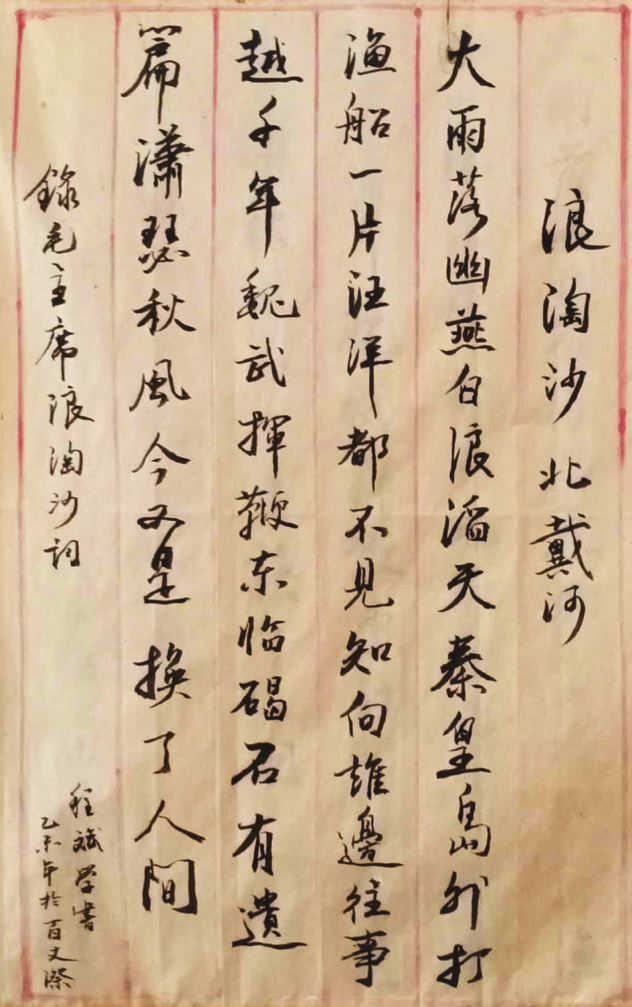 浪淘沙北戴河
大雨落幽燕白浪滔天秦皇島外打
漁船一片汪洋都不見知向誰邊往事
越千年魏武揮鞭东临碣石有遺
篇瀟瑟秋風今又是換了人間
錄毛主席浪淘沙詞
程斌学書
乙未年於百丈漈